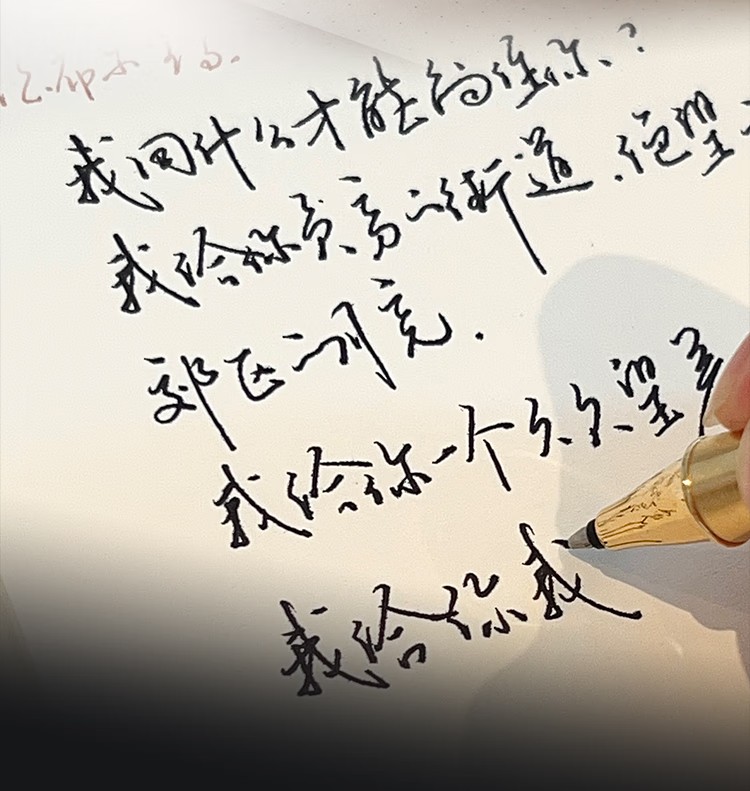 我用什么才能留住你？
我给你贫穷的街道、绝望
郊区的月亮.
我给你一个久久望着
我给你我